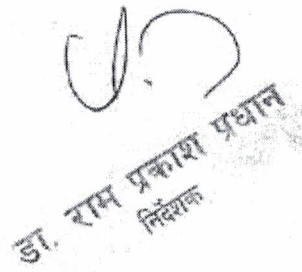 डा. राम प्रकाश प्रधान
निर्देशक